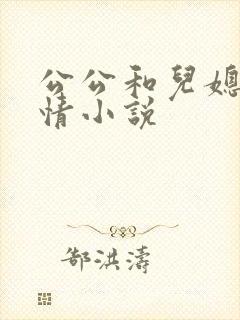 公公和兒媳
情小說
郜洪濤